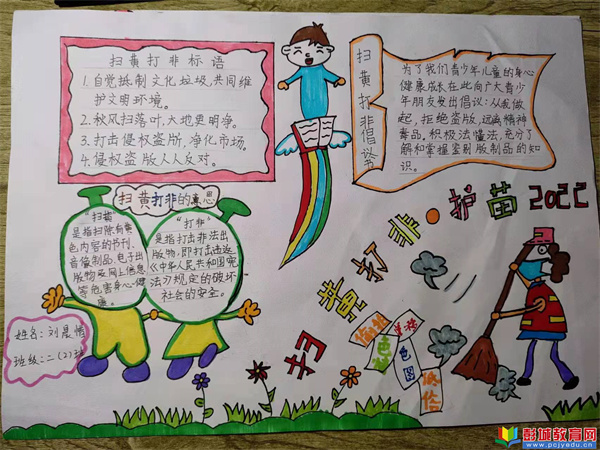 扫黄打非标语
1.自觉抵制文化垃圾,共同维
护文明环境。
2.秋风扫落叶,大地更明净。
3.打击侵权盗版,净化市场,
4.侵权盗版人人反对。
扫黄打非倡议书
为了我们青少年儿童的身心
健康成长在此向广大青少
年朋友发出倡议:从我做
起,拒绝盗版,远离精神
毒品。积极法懂法,充分了
解和掌握鉴别版制品的知
识。
扫黄打非的意思
“扫黄”
是指扫除有黄
色内容的书刊、
音像制品、电子出
版物及网上信息
等危害身心健
康。
“打非”
是指打击非法出
版物,即打击违反
《中华人民共和国宪
法》规定的破坏
社会的安全。
扫黄打非·护苗2022
色图
低俗
姓名:刘晨
班级:二(2)班
彭城教育网
www.pcjyedu.cn